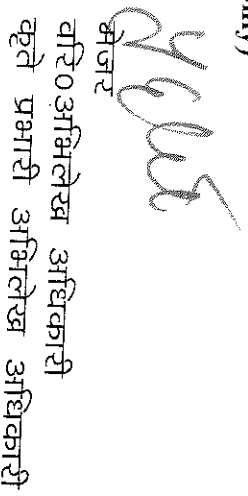 मेजर
वरि०अभिलेख अधिकारी
कृते प्रभारी अभिलेख अधिकारी